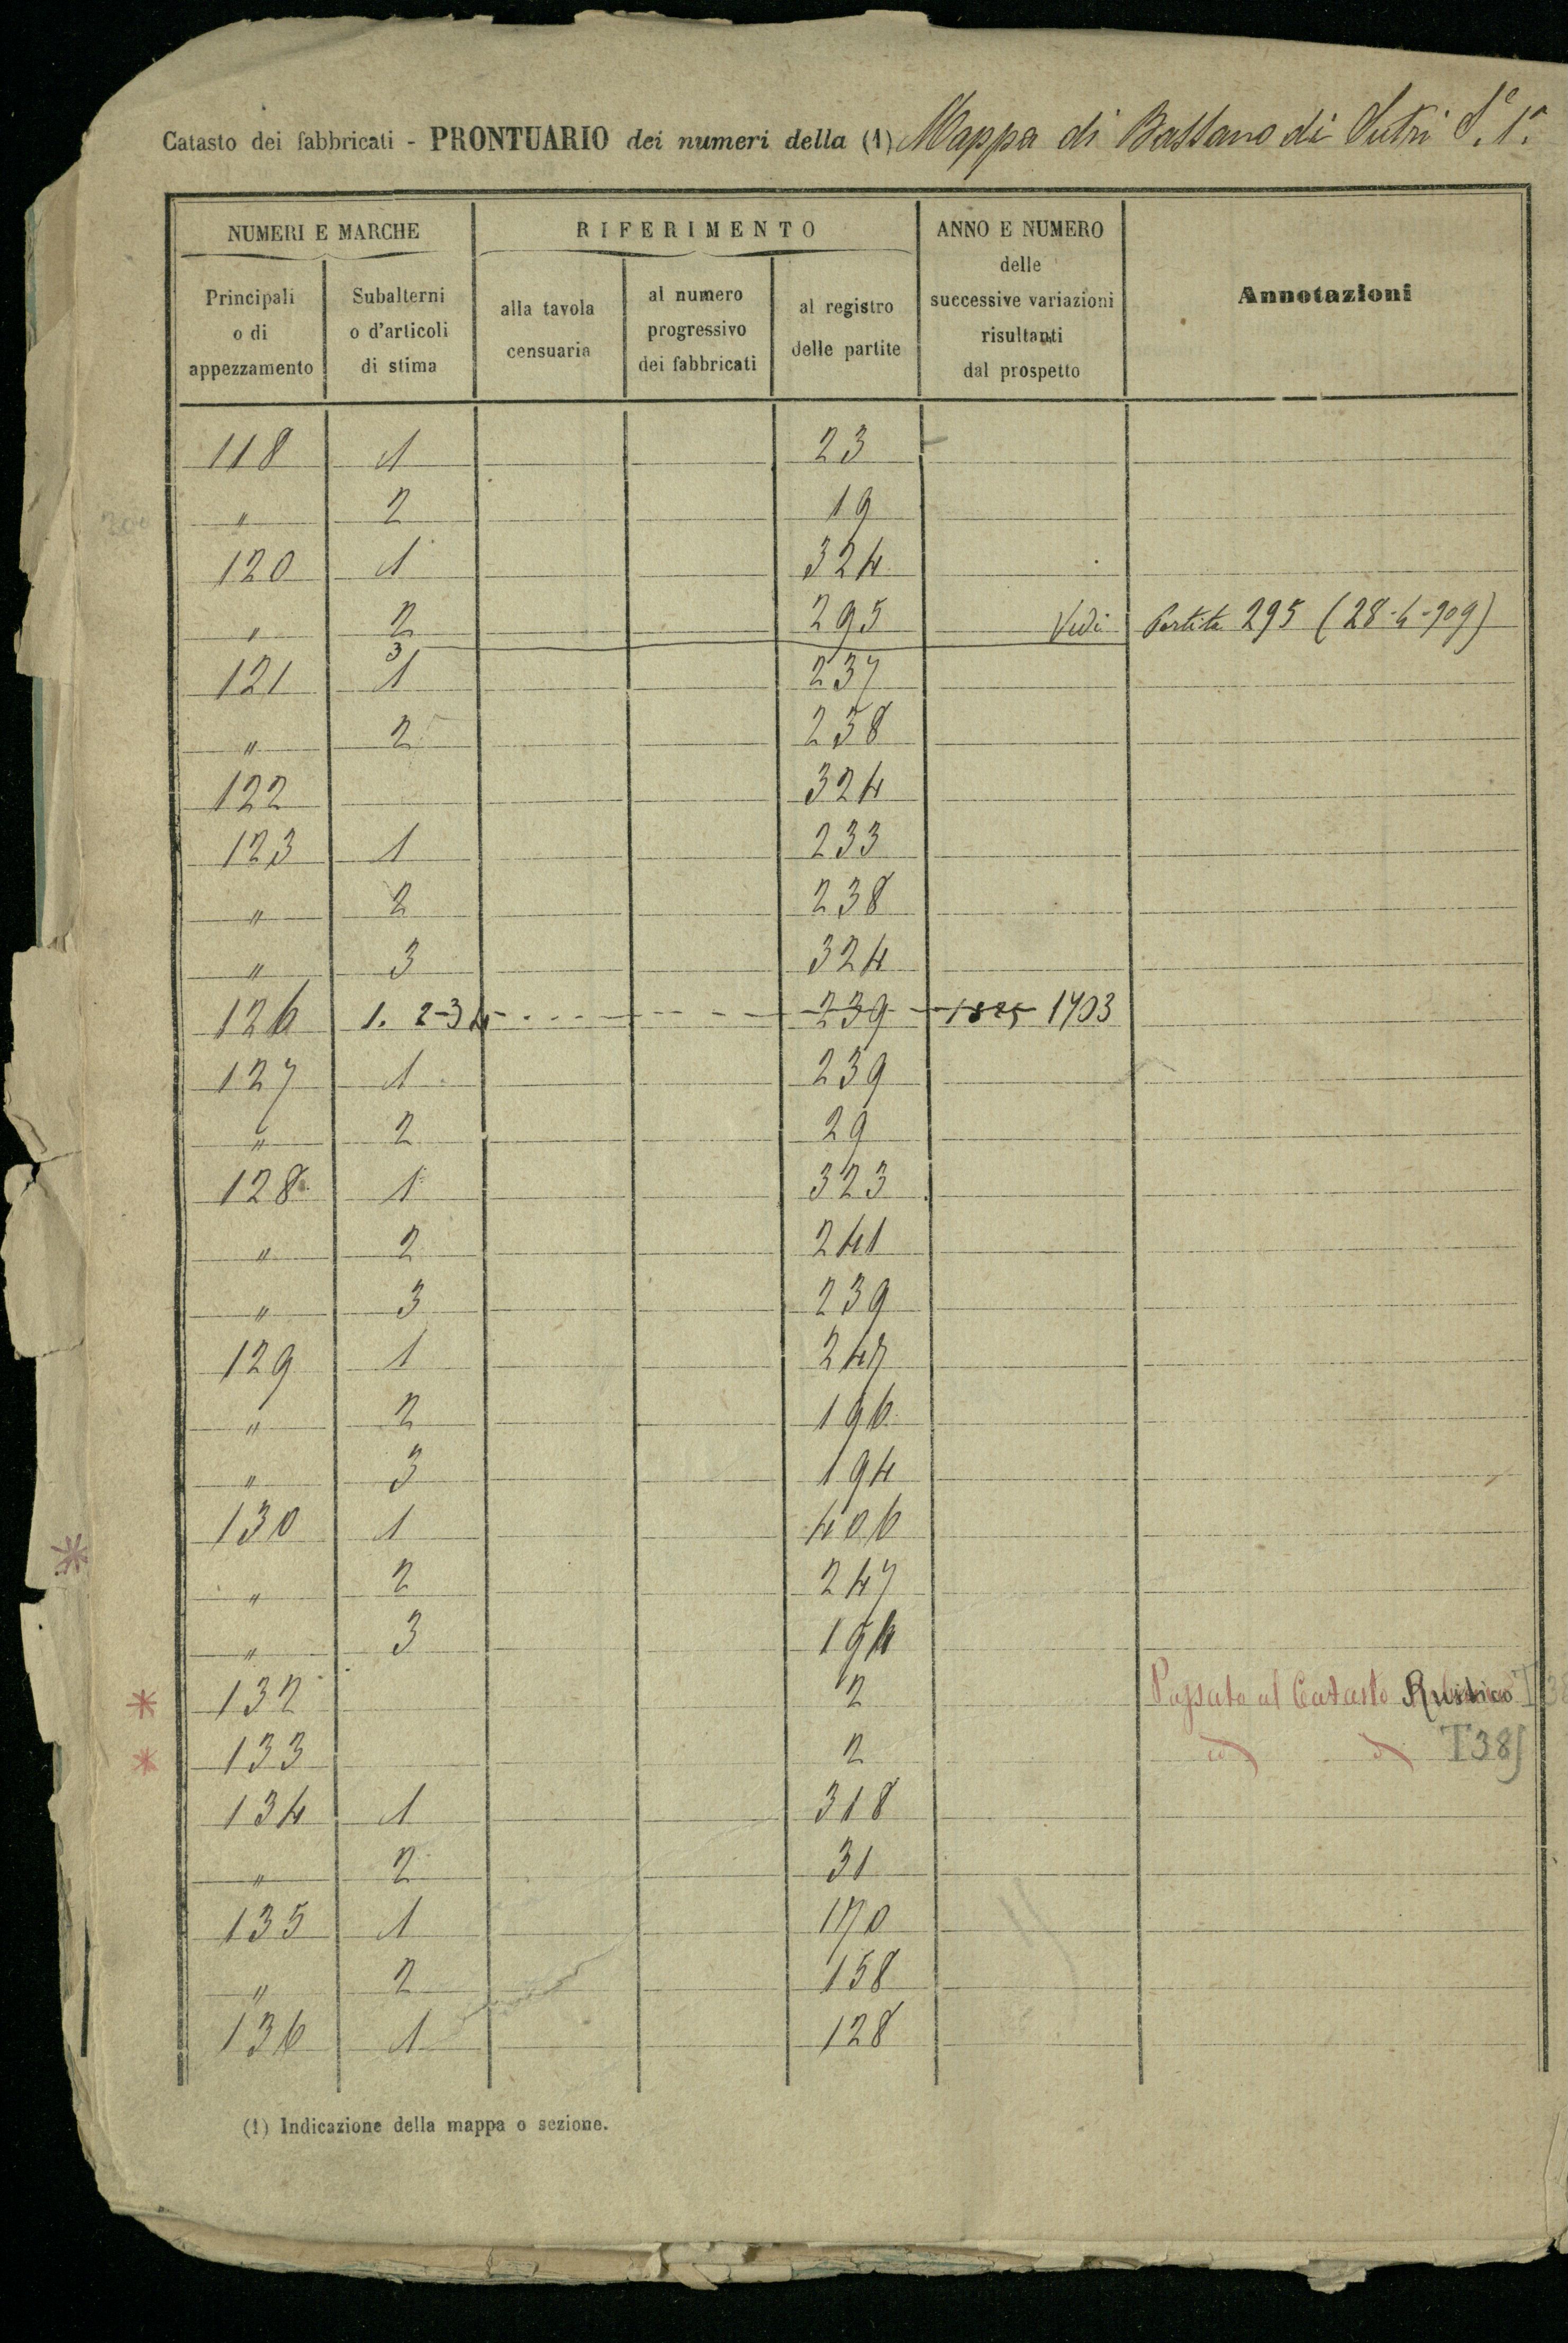 Catasto dei fabbricati - PRONTUARIO dei numeri della (1) Mappa di Bassano di Sutri S.e 1.a
NUMERI E MARCHE RIFERIMENTO ANNO E NUMERO delle successive variazioni risultanti dal prospetto Annotazioni
Principali o di appezzamento Subalterni o d'articoli di stima alla tavola censuaria al numero progressivo dei fabbricati al registro delle partite
118 1 23
200 " 2 19
120 1 324
" 2 295 Vedi Partita 295 (28-4-909)
3
121 1 237
" 2 238
122 324
123 1 233
" 2 238
" 3 324
126 1. 2-3 4 239 1703
127 1 239
" 2 29
128 1 323
" 2 241
" 3 239
129 1 247
" 2 196
" 3 194
130 1 406
" 2 247
" 3 194
* 132 2 Passato al Catasto Rustico T 38
* 133 2 T 38
134 1 318
" 2 31
135 1 170
" 2 158
136 1 128
(1) Indicazione della mappa o sezione.